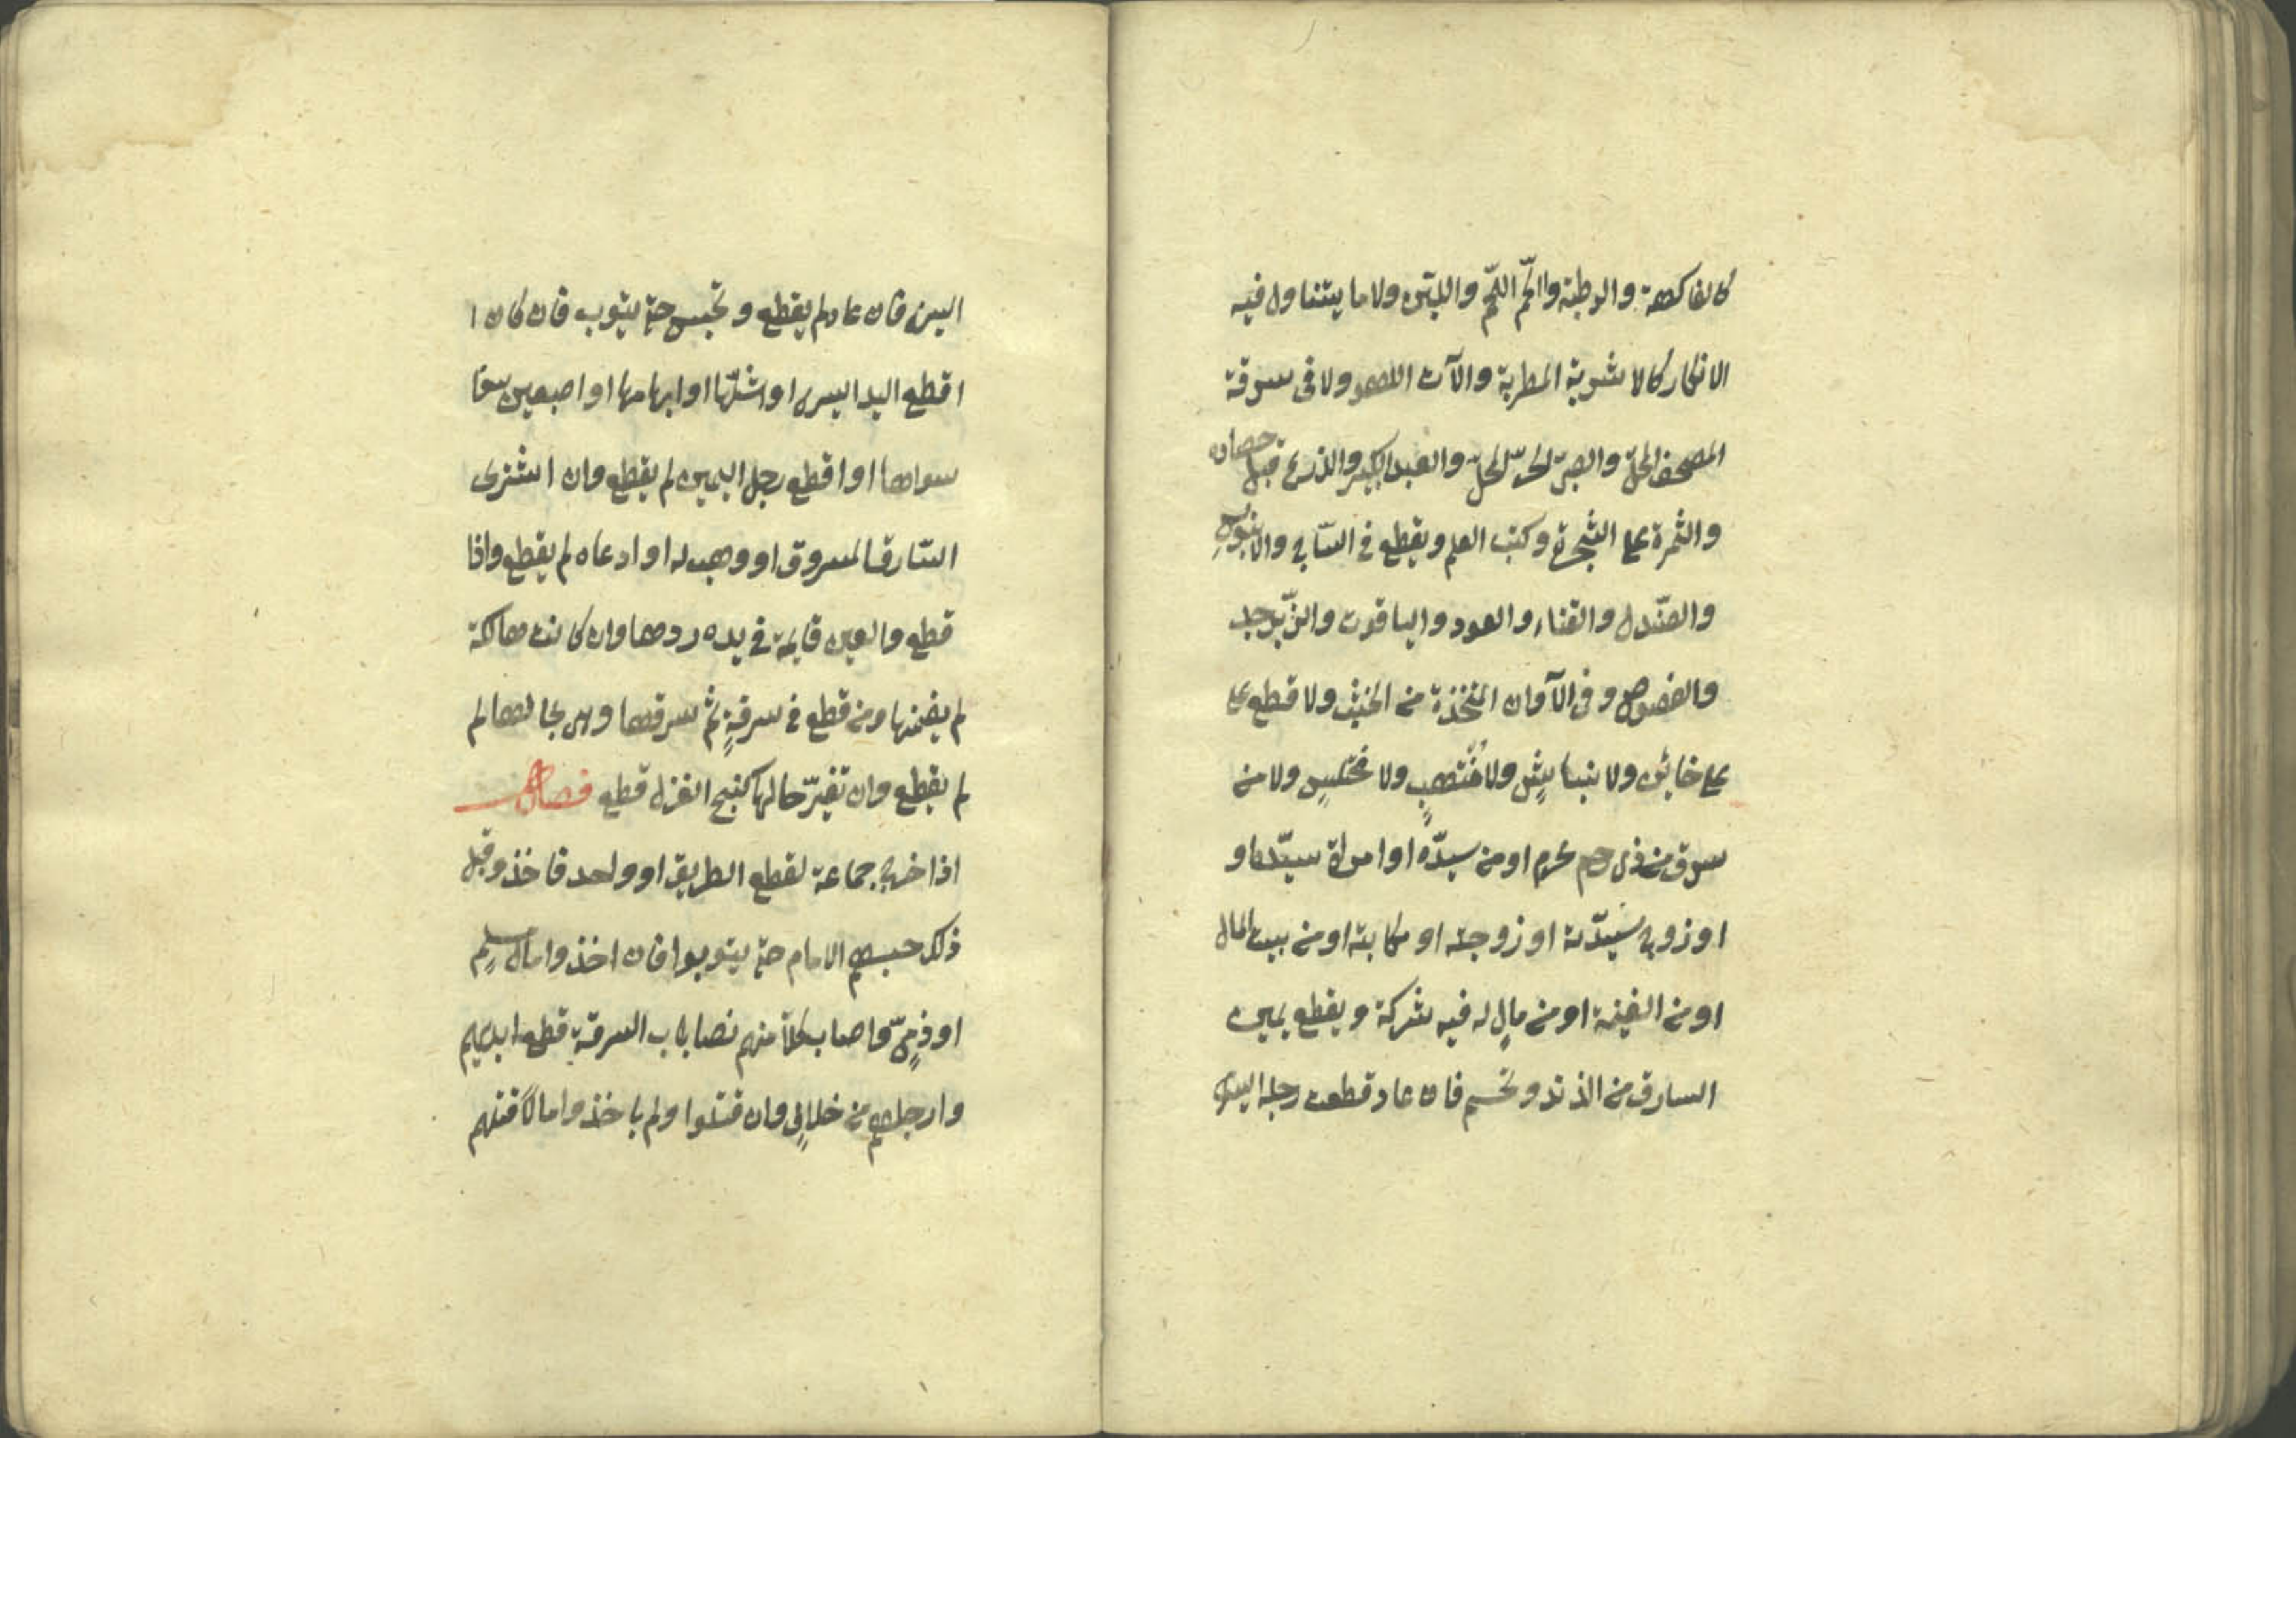 كالفاكهة والرطبة واللحم اللحم واللبن ولا ما يتناول فيه
الانكار كالاشربة المطربة والآت اللهو ولا فى سرقة
المصحف المحلّ والصبىّ الحرّ المحلّ والعبد الكبير والذرع قبل حصاده
والثمرة على الشجرة وكتب العلم ويقطع فى السّاج والابنوس
والصّندل والقناء والعود والياقوت والزّبرجد
والفصوص وفى الآوان المتخذة من الخشب ولا قطع على
على خائن ولا نباش ولا منتهب ولا مختلس ولا من
سرق من ذى رحم محرم او من سيدّه او امراة سيّده او
او زوج سيّدته او زوجته او مكاتبه او من بيت المال
او من الغنيمة او من مال له فيه شركة ويقطع يمين
السارق من الزند وتحسم فان عاد قطعت رجله اليسرى
اليسرى فان عاد لم يقطع وتحبس حتى يتوب فان كان ا
اقطع اليد اليسرى او اشلّها او ابهامها او اصبعين
سواها او اقطع رجل اليمين لم يقطع وان اشترى
السّارق المسروق او وهب له او ادعاه لم يقطع واذا
قطع والعين قايمة فى يده ردها وان كانت هالكة
لم يضمنها ومن قطع فى سرقةٍ ثم سرقها وهى بحالها لم
لم يقطع وان تغيرّ حالها كنسج الغزل قطع فصل
اذا خرج جماعة لقطع الطريق او واحد فاخذ وقبل
ذلك حبسهم الامام حتى يتوبوا فان اخذوا مال مسلم
او ذمىّ واصاب كلا منهم نصاب السرقة قطع ايديهم
وارجلهم من خلاف وان قتلوا ولم ياخذوا مالا قتلهم